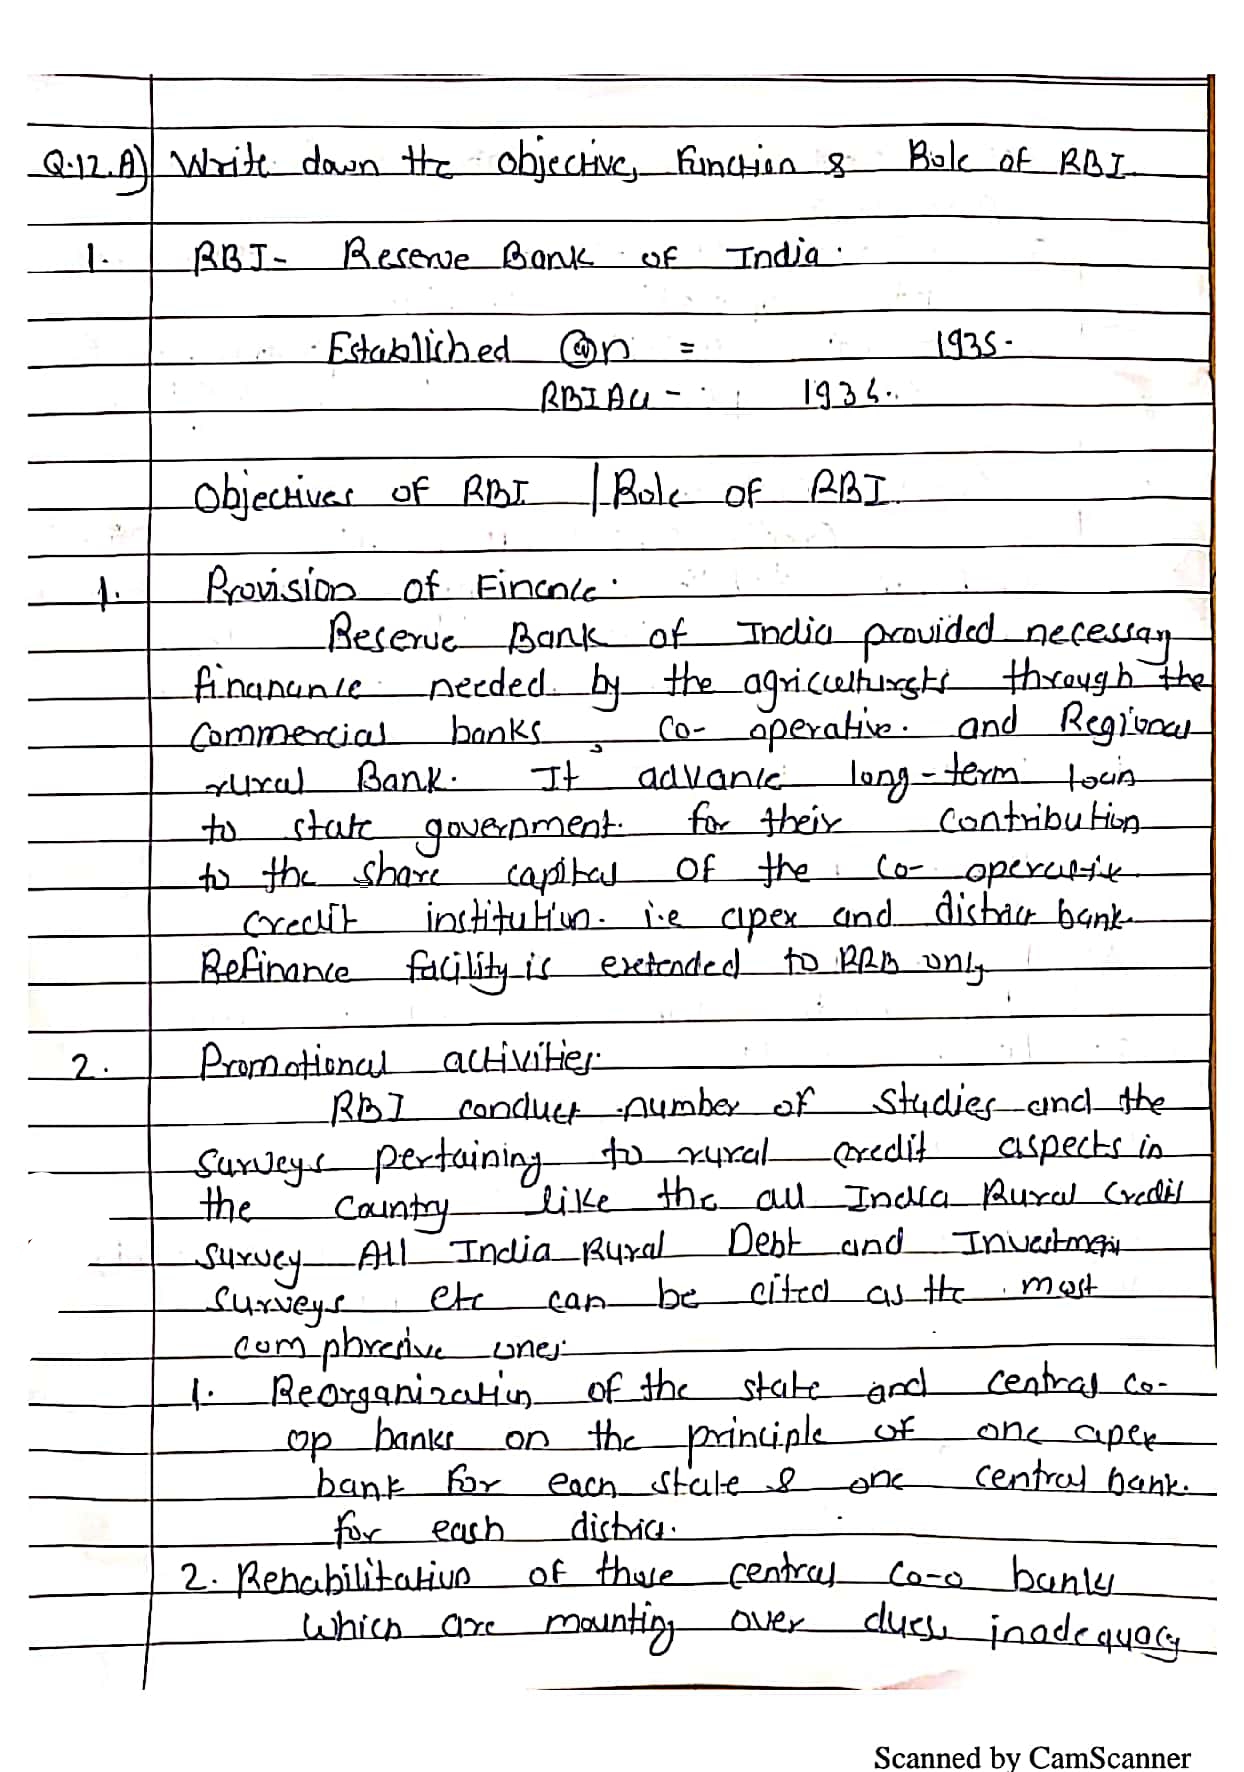 Q.12.A) Write down the objective, Function & Role of RBI
1. RBI- Reserve Bank of India.
Established @n = 1935.
RBI Act - 1934.
Objectives of RBI | Role of RBI.
1. Provision of Finance.
Reserve Bank of India provided necessary
finanance needed by the agriculturists through the
commercial banks, co-operative. and Regional
rural Bank. It advance long-term loan
to state government. for their contribution
to the share capital of the co-operative
credit institution. i.e apex and district bank.
Refinance facility is extended to RRB only
2. Promotional activities.
RBI conduct number of studies and the
surveys pertaining to rural credit aspects in
the country like the all India Rural Credit
survey All India Rural Debt and Investment
surveys etc can be cited as the most
comphresive ones.
1. Reorganization of the state and central co-
op banks on the principle of one apex
bank for each state & one central bank.
for each district.
2. Rehabilitation of those central co-o banks
which are mounting over dues inadequacy
Scanned by CamScanner